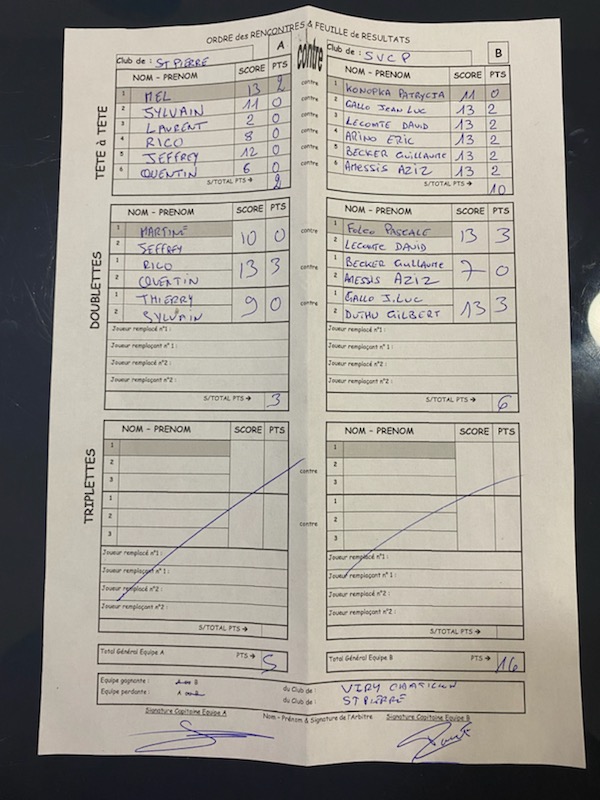 ORDRE des RENCONTRES & FEUILLE de RESULTATS
Club de : ST PIERRE A contre Club de : SVCP B
NOM - PRENOM SCORE PTS NOM - PRENOM SCORE PTS
TETE à TETE
1 MEL 13 2 contre 1 KONOPKA PATRYCJA 11 0
2 SYLVAIN 11 0 contre 2 GALLO JEAN LUC 13 2
3 LAURENT 2 0 contre 3 LECOMTE DAVID 13 2
4 RICO 8 0 contre 4 ARINO ERIC 13 2
5 JEFFREY 12 0 contre 5 BECKER GUILLAUME 13 2
6 QUENTIN 6 0 contre 6 AMESSIS AZIZ 13 2
S/TOTAL PTS → 2 S/TOTAL PTS → 10
DOUBLETTES
NOM - PRENOM SCORE PTS NOM - PRENOM SCORE PTS
1 MARTINE 10 0 contre 1 FOLCO PASCALE 13 3
2 JEFFREY 2 LECOMTE DAVID
1 RICO 13 3 contre 1 BECKER GUILLAUME 7 0
2 QUENTIN 2 AMESSIS AZIZ
1 THIERRY 9 0 contre 1 GALLO J.LUC 13 3
2 SYLVAIN 2 DUTHU GILBERT
Joueur remplacé n°1 : Joueur remplacé n°1 :
Joueur remplaçant n° 1 : Joueur remplaçant n° 1 :
Joueur remplacé n°2 : Joueur remplacé n°2 :
Joueur remplaçant n°2 : Joueur remplaçant n°2 :
S/TOTAL PTS → 3 S/TOTAL PTS → 6
TRIPLETTES
NOM - PRENOM SCORE PTS NOM - PRENOM SCORE PTS
1 1
2 contre 2
3 3
1 1
2 contre 2
3 3
Joueur remplacé n°1 : Joueur remplacé n°1 :
Joueur remplaçant n° 1 : Joueur remplaçant n° 1 :
Joueur remplacé n°2 : Joueur remplacé n°2 :
Joueur remplaçant n°2 : Joueur remplaçant n°2 :
S/TOTAL PTS → S/TOTAL PTS →
Total Général Equipe A PTS → 5 Total Général Equipe B PTS → 16
Equipe gagnante : B du Club de : VIRY CHATILLON
Equipe perdante : A du Club de : ST PIERRE
Signature Capitaine Equipe A Nom - Prénom & Signature de l'Arbitre Signature Capitaine Equipe B